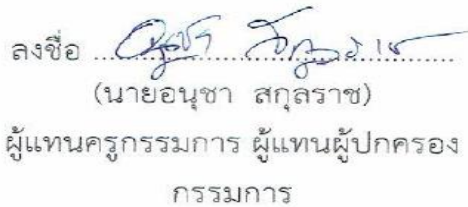 ลงชื่อ ............................................
(นายอนุชา สกุลราช)
ผู้แทนครูกรรมการ ผู้แทนผู้ปกครอง
กรรมการ